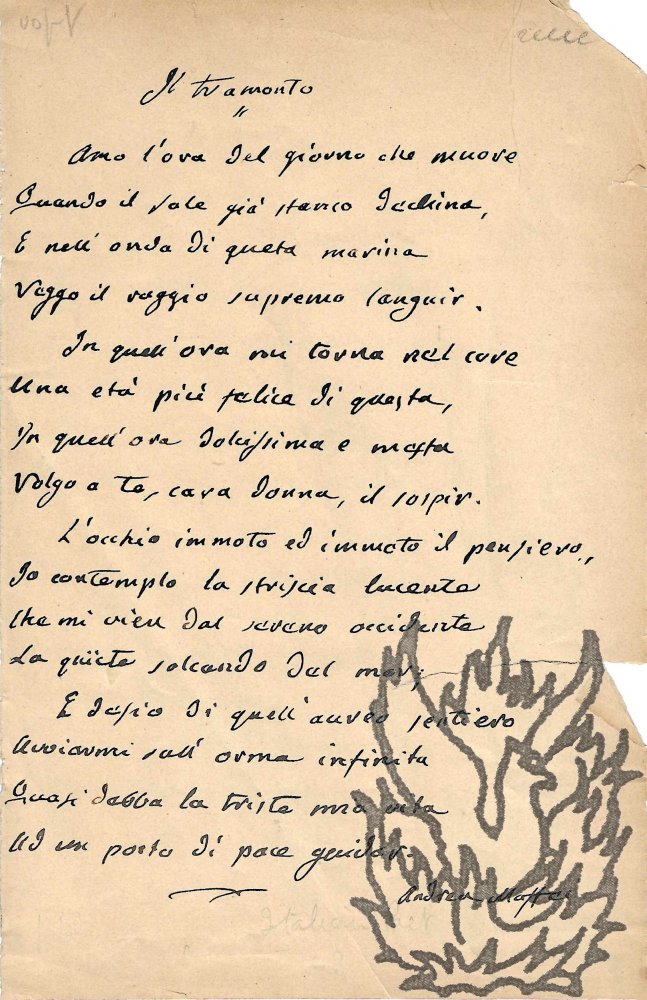 Il tramonto
Amo l'ora del giorno che muore
Quando il sole già stanco declina,
E nell'onda di queta marina
Veggo il raggio supremo languir.
In quell'ora mi torna nel core
Una età più felice di questa,
In quell'ora dolcissima e mesta
Volgo a te, cara donna, il sospir.
L'occhio immoto ed immoto il pensiero,
Io contemplo la striscia lucente
Che mi vien dal sereno occidente
La quiete solcando del mar;
E desio di quell'aureo sentiero
Avviarmi sull'orma infinita
Quasi debba la triste mia vita
Ad un porto di pace guidar.
Andrea Maffei